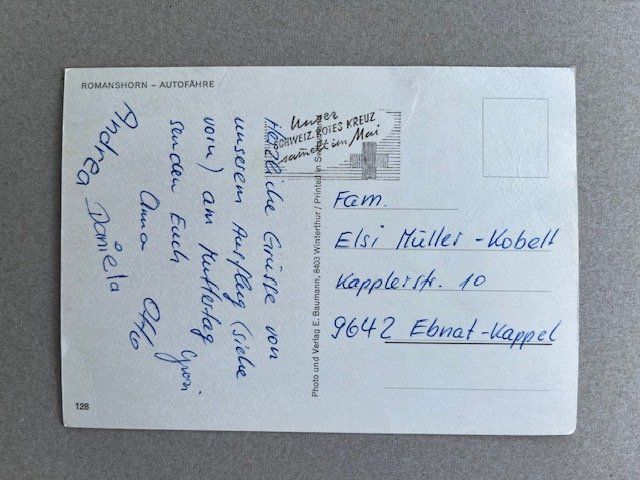 ROMANSHORN – AUTOFÄHRE
Herzliche Grüsse von
unserem Ausflug (siehe
vorn) am Muttertag
senden Euch Grosi
Anna Otto
Andrea Daniela
128
Photo und Verlag E. Baumann, 8403 Winterthur / Printed in
Unser
SCHWEIZ. ROTES KREUZ
sammelt im Mai
Fam.
Elsi Müller-Kobelt
Kapplerstr. 10
9642 Ebnat-Kappel